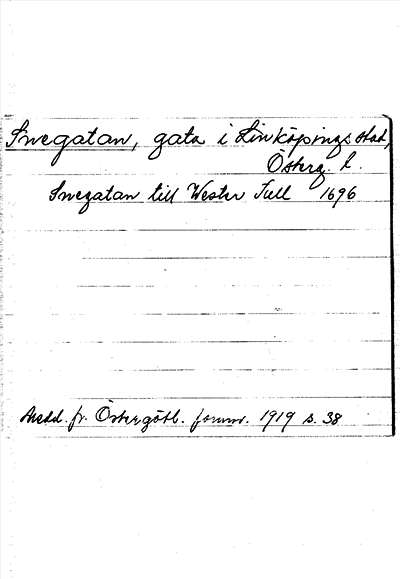 Snegatan, gata i Linköpings stad,
Österg. l.
Snegatan till Wester Tull 1696
Medd. fr. Östergötl. fornm. 1919 s. 38